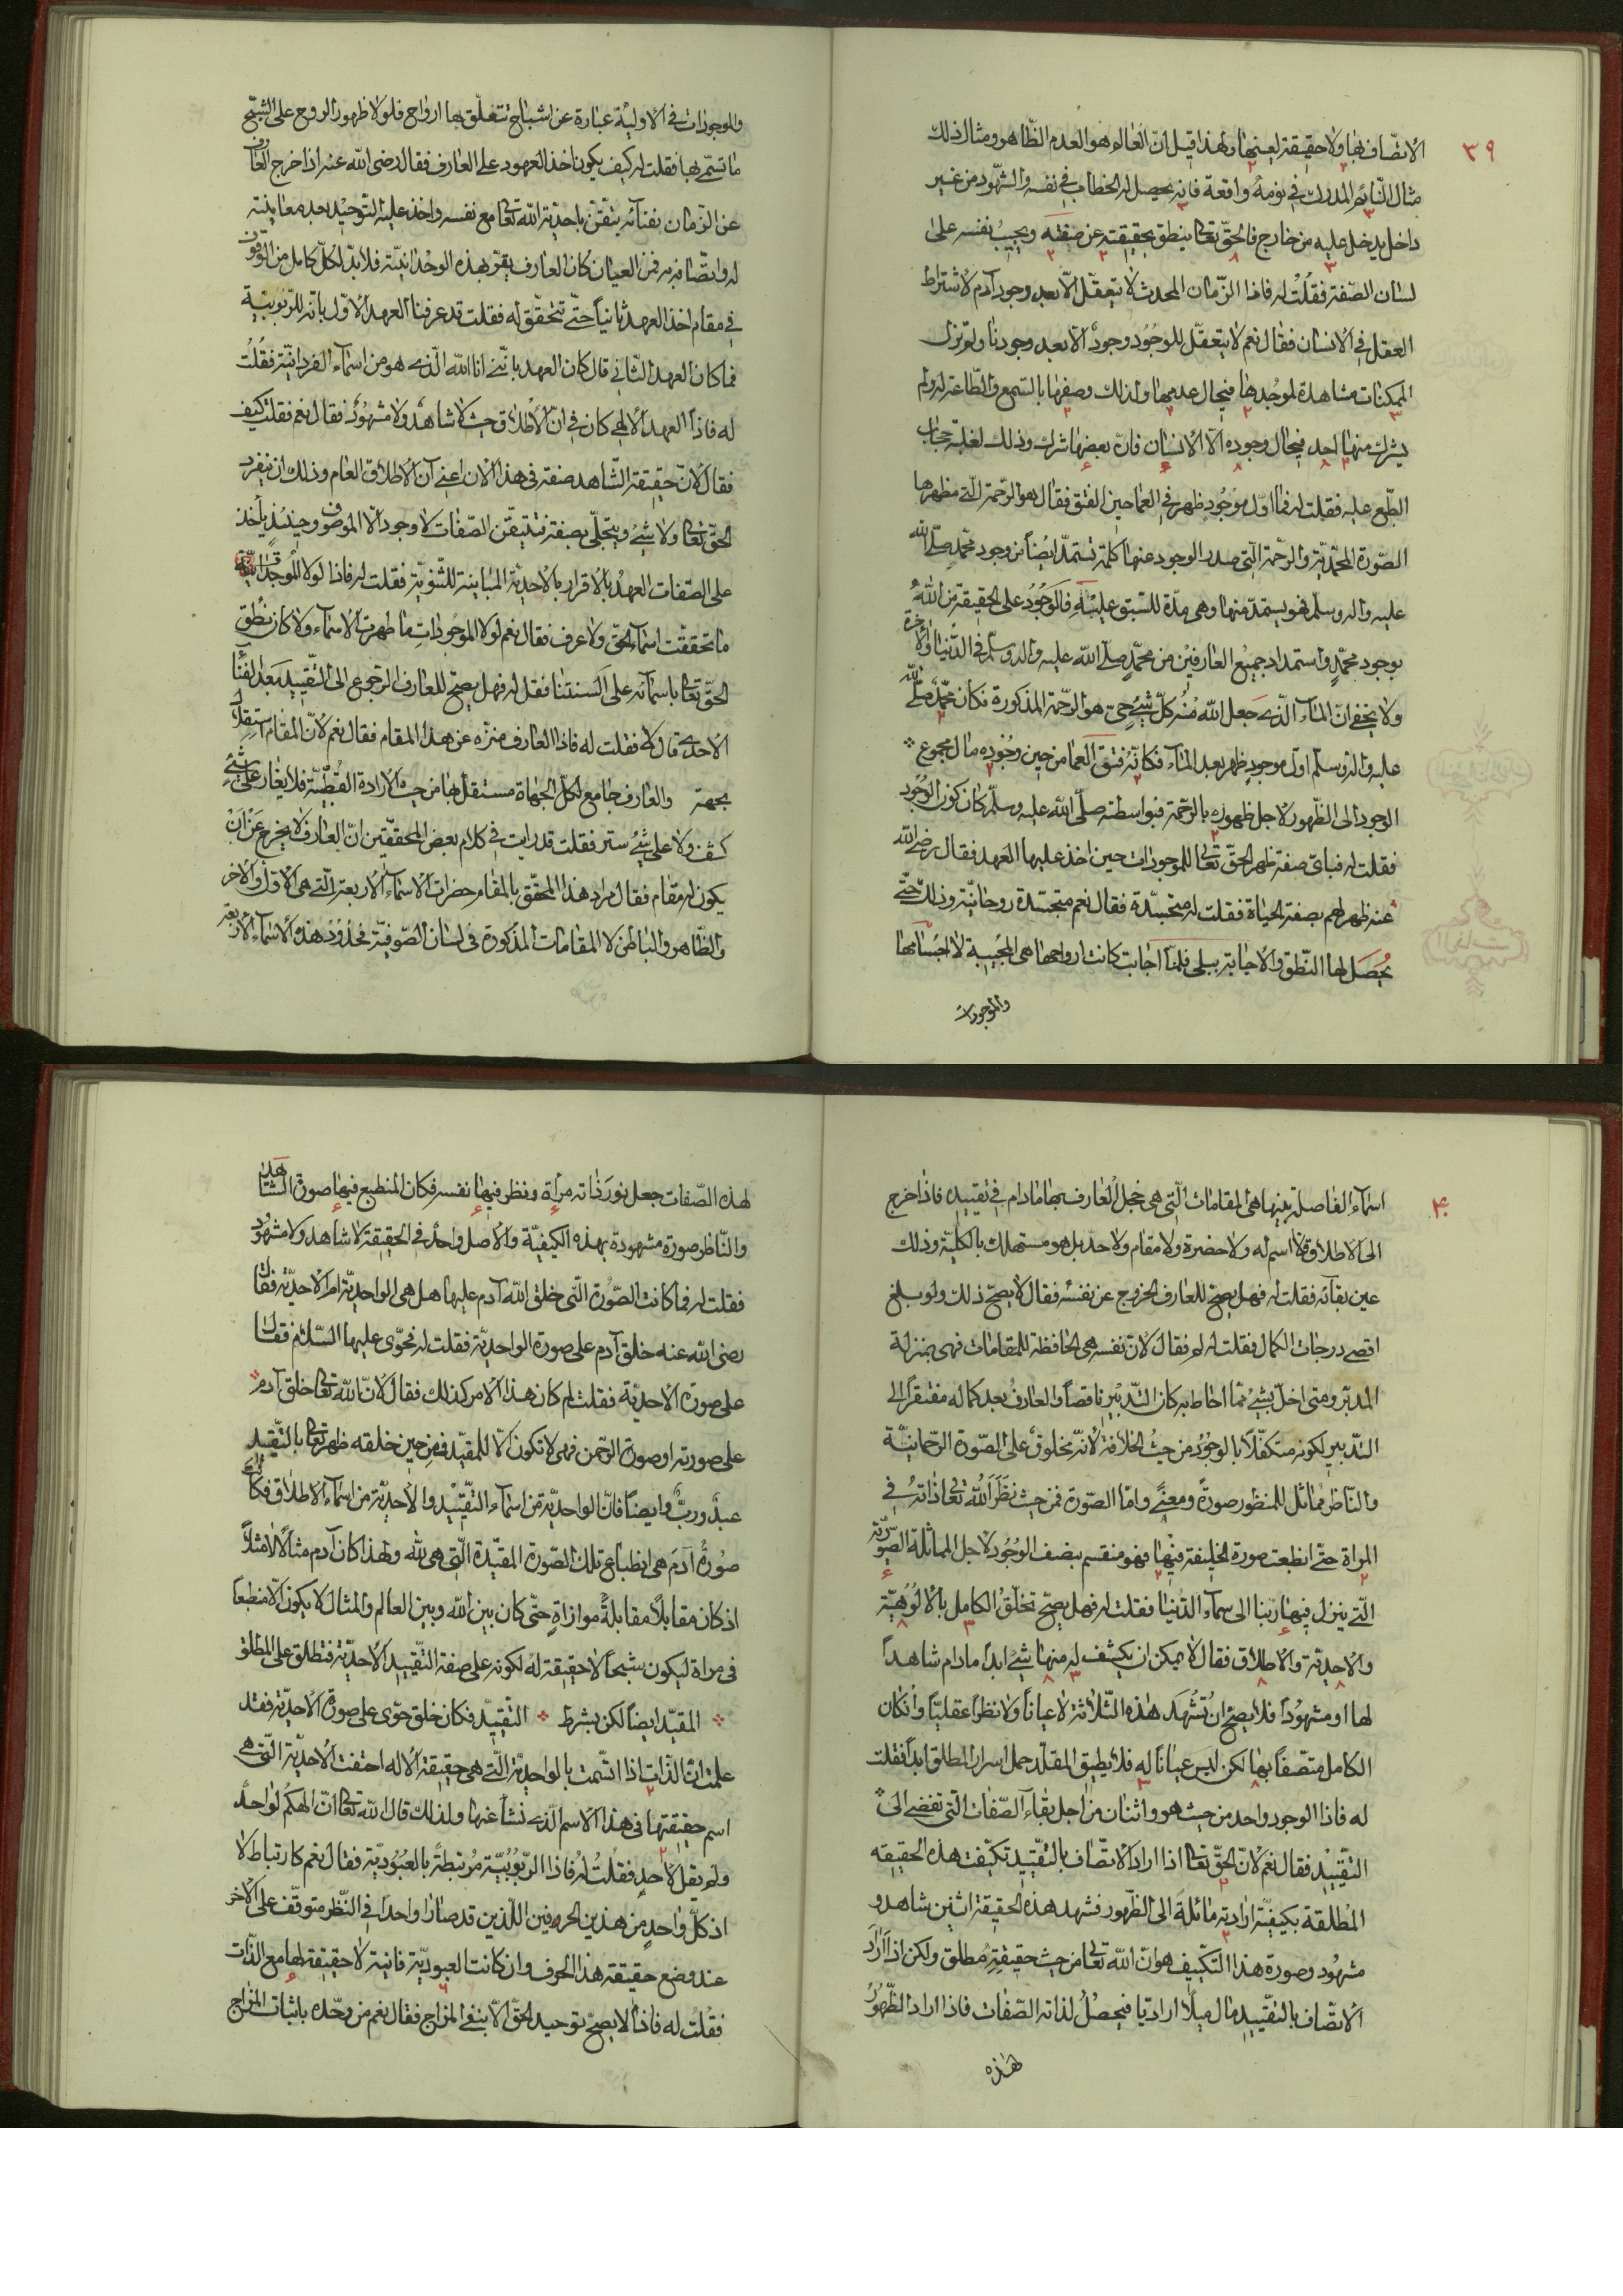 ٣٩
الاتصّاف بها ولا حقيقة لعينها ولهذا قيل انّ العالم هو العدم الظّاهر ومثال ذلك
مثال النّائم المدرك في نومه واقعة فانه يحصل له الخطاب في نفسه والشّهود من غير
داخل يدخل عليه من خارج فالحقّ تعالى ينطق بحقيقته عن صفته ويجيب نفسه على
لسان الصّفة فقلت له فاذا الزّمان المحدث لا يتعقّل الّا بعد وجود آدم لاشتراط
العقل في الانسان فقال نعم لا يتعقّل للوجود وجودٌ الّا بعد وجودنا ولم تزل
الممكنات مشاهدة لموجدها في حال عدمها ولذلك وصفها بالسّمع والطّاعة له ولم
يشرك منها احد في حال وجوده الّا الانسان فانّ بعضها شرك وذلك لغلبة حجاب
الطّبع عليه فقلت له فما اوّل موجودٍ ظهر في العما حين الفتق فقال هو الرّحمة الّتي مظهرها
الصّورة المحمّديّة والرّحمة الّتي صدر الوجود عنها كلمة تستمدّ ايضاً من وجود محمّدٍ صلّى الله
عليه واله وسلّم فهو يستمدّ منها وهي مادّة للسّبق عليه فالوجود على الحقيقة من الله
بوجود محمّدٍ واستمداد جميع العارفين من محمّدٍ صلّى الله عليه واله وسلّم في الدّنيا والآخرة
ولا يخفى انّ الماء الّذي جعل الله منه كلّ شيء حيّ هو الرّحمة المذكورة فكان محمّد صلّى الله
عليه واله وسلّم اول موجودٍ ظهر بعد الماء فكانه فتق العما من حين وجوده مال مجموع
الوجود الى الظّهور لاجل ظهوره بالرّحمة فبواسطته صلّى الله عليه وسلّم كان كون الوجود
فقلت له فباىّ صفة ظهر الحقّ تعالى للموجودات حين اخذ عليها العهد فقال رضي الله
عنه ظهر لهم بصفة الحياة فقلت له متجسّدة فقال نعم متجسّدة روحانيّة وذلك حتّى
يحصل لها النّطق والاجابة ببلى فلمّا اجابت كانت ارواحها هي المجيبة لا اجسامها
والموجودات
والموجودات في الاوليّة عبارة عن اشباح تتعلّق بها ارواح فلولا ظهور الروح على الشّبح
ما تسمّى بها فقلت له كيف يكون اخذ العهود على العارف فقال رضى الله عنه اذا خرج العارف
عن الزّمان بفنائه يتقن باحديّة الله تعالى مع نفسه واخذ عليه التوحيد بعد معاينته
له واتّصافه به فمن العيان كان العارف يقرّ بهذه الوحدانيّة فلا بدّ لكلّ كامل من الوقوف
في مقام اخذ العهد ثانياً حتّى تتحقّق له فقلت قد عرفنا العهد الاوّل بانّه للرّبوبيّة
فما كان العهد الثّاني قال كان العهد بانّني انا الله الّذي هو من اسماء الفردانيّة فقلت
له فاذا العهد الالهي كان في ان الاطلاق حيث لا شاهدٌ ولا مشهودٌ فقال نعم فقلت كيف
فقال لانّ حقيقة الشّاهد صفة في هذا الان اعني آن الاطلاق العام وذلك ان ينفرد
الحقّ تعالى ولا شيء ويتجلّى بصفة فتتيقّن الصّفات لا وجود الّا الموصوف وحينئذ يأخذ
على الصّفات العهد بالاقرار بالاحديّة المباينة للثّنويّة فقلت له فاذا لولا الموجودات
ما تحقّقت اسماء الحقّ ولا عرف فقال نعم لولا الموجودات ما ظهرت الاسماء ولا كان نطق
الحقّ تعالى باسمائه على السنتنا فقلت له فهل يصحّ للعارف الرّجوع الى التّقييد بعد الفناء
الاحدي قال لا فقلت له فاذا العارف منزّه عن هذا المقام فقال نعم لانّ المقام استقلال
بجهة والعارف جامع لكلّ الجهاة مستقلّ بها من حيث الارادة القطبيّة فلا يغار على شيء
كشف ولا على شيء ستر فقلت قد رايت في كلام بعض المحقّقين انّ العارف لا يخرج عن ان
يكون له مقام فقال مراد هذا المحقّق بالمقام حضرات الاسماء الاربعة الّتي هي الاوّل والاخر
والظّاهر والباطن لا المقامات المذكورة في لسان الصّوفيّة فحدود هذه الاسماء الاربعة
٤٠
اسماء الفاصلة بينها هي المقامات الّتي هي محل العارف بها ما دام في تقييده فاذا خرج
الى الاطلاق فلا اسم له ولا حضرة ولا مقام ولا حد بل هو مستهلك بالكليّة وذلك
عين بقائه فقلت له فهل يصحّ للعارف الخروج عن نفسه فقال لا يصحّ ذلك ولو بلغ
اقصى درجات الكمال فقلت له لم فقال لانّ نفسه هي الحافظة للمقامات فهي بمنزلة
المدبّر ومتى اخلّ بشيء ممّا احاط به كان التّدبير ناقصاً والعارف بعد كماله مفتقراً الى
التدبير لكونه متكفّلاً بالوجود من حيث الخلافة لانّه مخلوق على الصّورة الرّحمانيّة
والنّاظر مماثل للمنظور صورةً ومعنىً وامّا الصّورة فمن حيث نظر الله تعالى ذاته في
المرآة حتّى انطبعت صورة الخليفة فيها فهو منقسم بنصف الوجود لاجل المماثلة الصّوريّة
الّتي ينزل فيها ربّنا الى سماء الدّنيا فقلت له فهل يصحّ تخلّق الكامل بالالوهيّة
والاحديّة والاطلاق فقال لا يمكن ان يكشف له منها شيء ابداً ما دام شاهداً
لها او مشهوداً فلا يصحّ ان تُشهد هذه الثّلاثة لا عياناً ولا نظراً عقليّاً وان كان
الكامل متّصفاً بها لكن ليس عياناً له فلا يطيق المقيّد حمل اسرار المطلق ابداً فقلت
له فاذا الوجود واحد من حيث هو واثنان من اجل بقاء الصّفات الّتي تفضي الى
التقييد فقال نعم لانّ الحقّ تعالى اذا اراد الاتّصاف بالتّقييد تكيّفت هذه الحقيقة
المطلقة بكيفيّة اراديّة مائلة الى الظّهور فشهد هذه الحقيقة اثنين شاهد و
مشهود وصورة هذا التّكييف هو انّ الله تعالى من حيث حقيقته مطلق ولكن اذا اراد
الاتّصاف بالتّقييد مال ميلاً اراديّا فيحصل لذاته الصّفات فاذا اراد الظّهور
هذه
لهذه الصّفات جعل نور ذاته مرآة ونظر فيها نفسه فكان المنطبع فيها صورة الشّاهد
والنّاظر صورة مشهودة بهذه الكيفيّة والاصل واحد في الحقيقة لا شاهد ولا مشهود
فقلت له فما كانت الصّورة الّتي خلق الله آدم عليها هل هي الواحديّة ام الاحديّة فقال
رضى الله عنه خلق آدم على صورة الواحديّة فقلت له فحوّى عليها السّلام فقال
على صورة الاحديّة فقلت لم كان هذا الامر كذلك فقال لانّ الله تعالى خلق آدم
على صورته او صورة الرّحمن فهي لا تكون الّا للمقيّد فمن حين خلقه ظهر تعالى بالتّقييد
عبدٌ وربٌّ وايضاً فانّ الواحديّة من اسماء التّقييد والاحديّة من اسماء الاطلاق فكانت
صورة آدم هي انطباع تلك الصّورة المقيّدة الّتي هي لله ولهذا كان آدم مثالاً لا مثلاً
اذ كان مقابلاً مقابلةً موازاةٍ حتّى كان بين الله وبين العالم والمثال لا يكون الّا منطبعاً
في مرآة ليكون شبحاً لا حقيقة له لكونه على صفة التّقييد الاحديّة فتطلق على المطلق
المقيّد ايضاً لكن بشرط التّقييد فكان خلق حوّى على صورة الاحديّة فقد
علمت ان الذّات اذا اتّسمت بالواحديّة الّتي هي حقيقة الاله اختفت الاحديّة الّتي هي
اسم حقيقتها في هذا الاسم الّذي نشأ عنها ولذلك قال الله تعالى انّ الهكم لواحدٌ
ولم يقل لأحد فقلت له فاذا الرّبوبيّة مرتبطة بالعبوديّة فقال نعم كارتباط لا
اذ كلّ واحدٍ من هذين الحرفين اللّذين قد صارا واحداً في النّظر متوقّف على الاخر
عند وضع حقيقة هذا الحرف وان كانت العبوديّة فانية لا حقيقة لها مع الذّات
فقلت له فاذاً لا يصحّ توحيد الحقّ الّا بنفي المزاج فقال نعم من وحّده باثبات المزاج